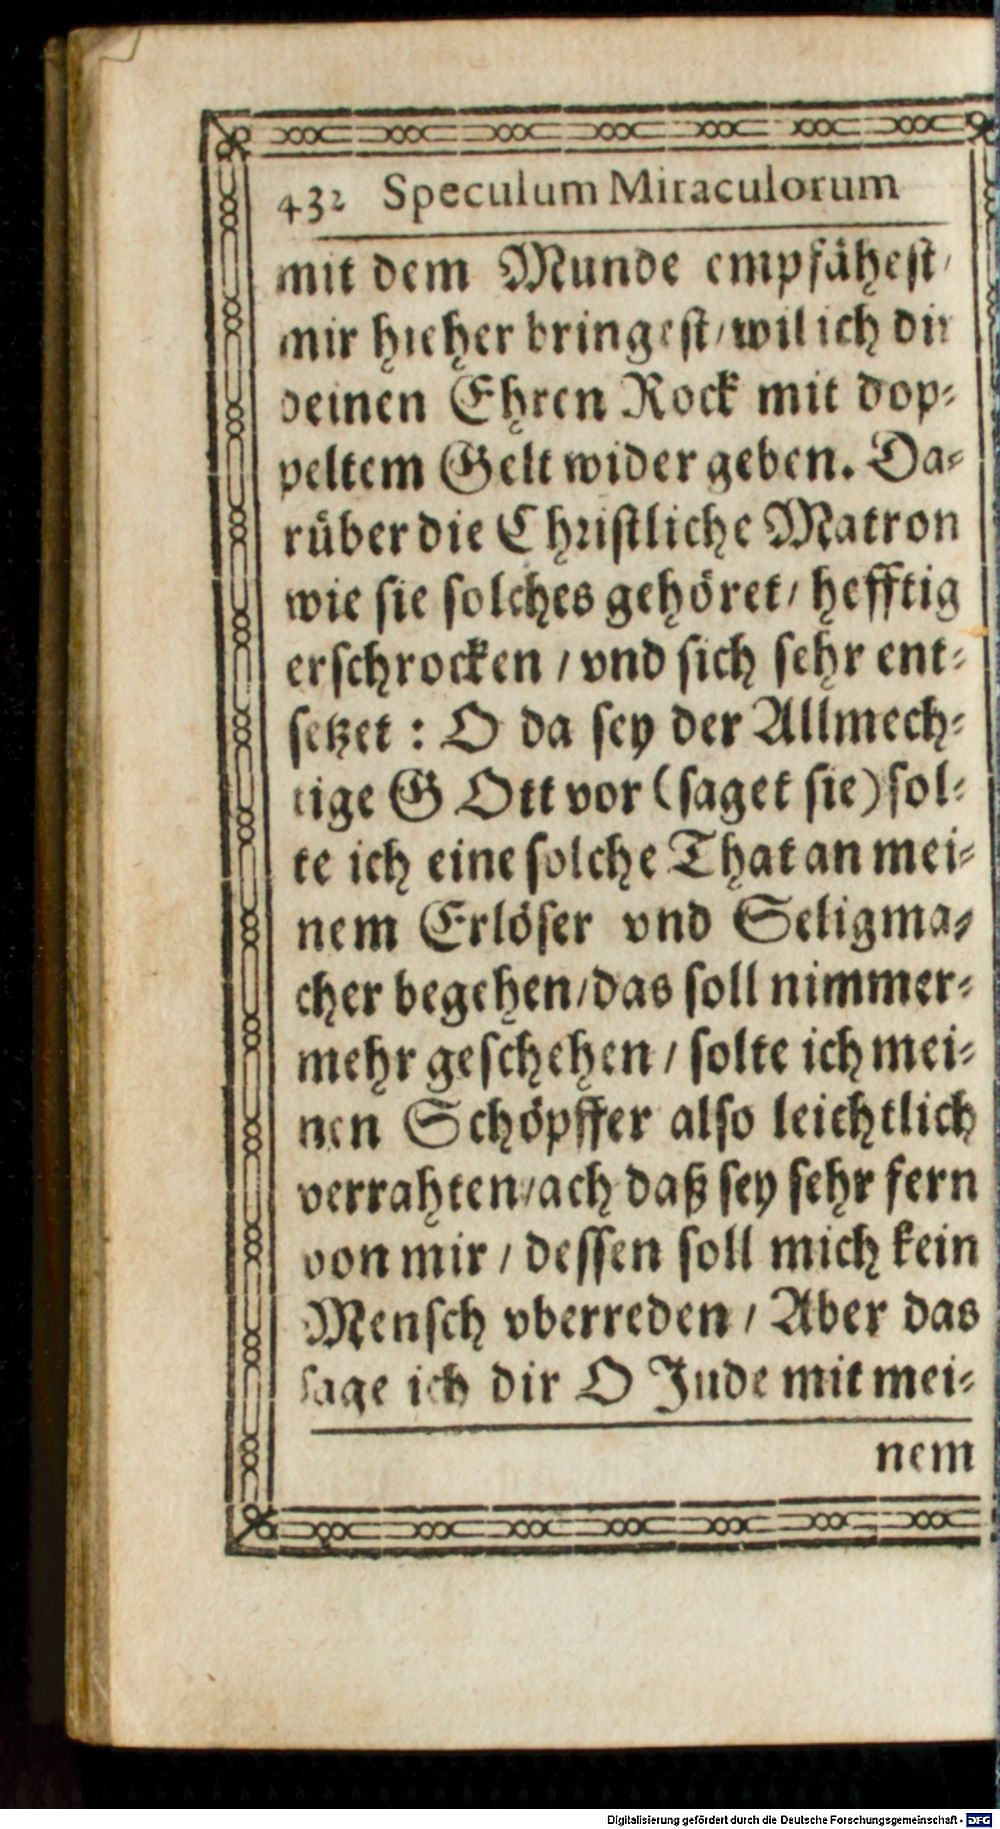 432 Speculum Miraculorum
mit dem Munde empfähest/
mir hieher bringest/wil ich dir
deinen Ehren Rock mit dop⸗
peltem Gelt wider geben. Da⸗
rüber die Christliche Matron
wie sie solches gehöret/ hefftig
erschrocken / vnd sich sehr ent⸗
setzet : O da sey der Allmech⸗
tige GOtt vor (saget sie) sol⸗
te ich eine solche That an mei⸗
nem Erlöser vnd Seligma⸗
cher begehen/das soll nimmer⸗
mehr geschehen / solte ich mei⸗
nen Schöpffer also leichtlich
verrahten/ach daß sey sehr fern
von mir / dessen soll mich kein
Mensch vberreden / Aber das
sage ich dir O Jude mit mei⸗
nem
Digitalisierung gefördert durch die Deutsche Forschungsgemeinschaft - DFG